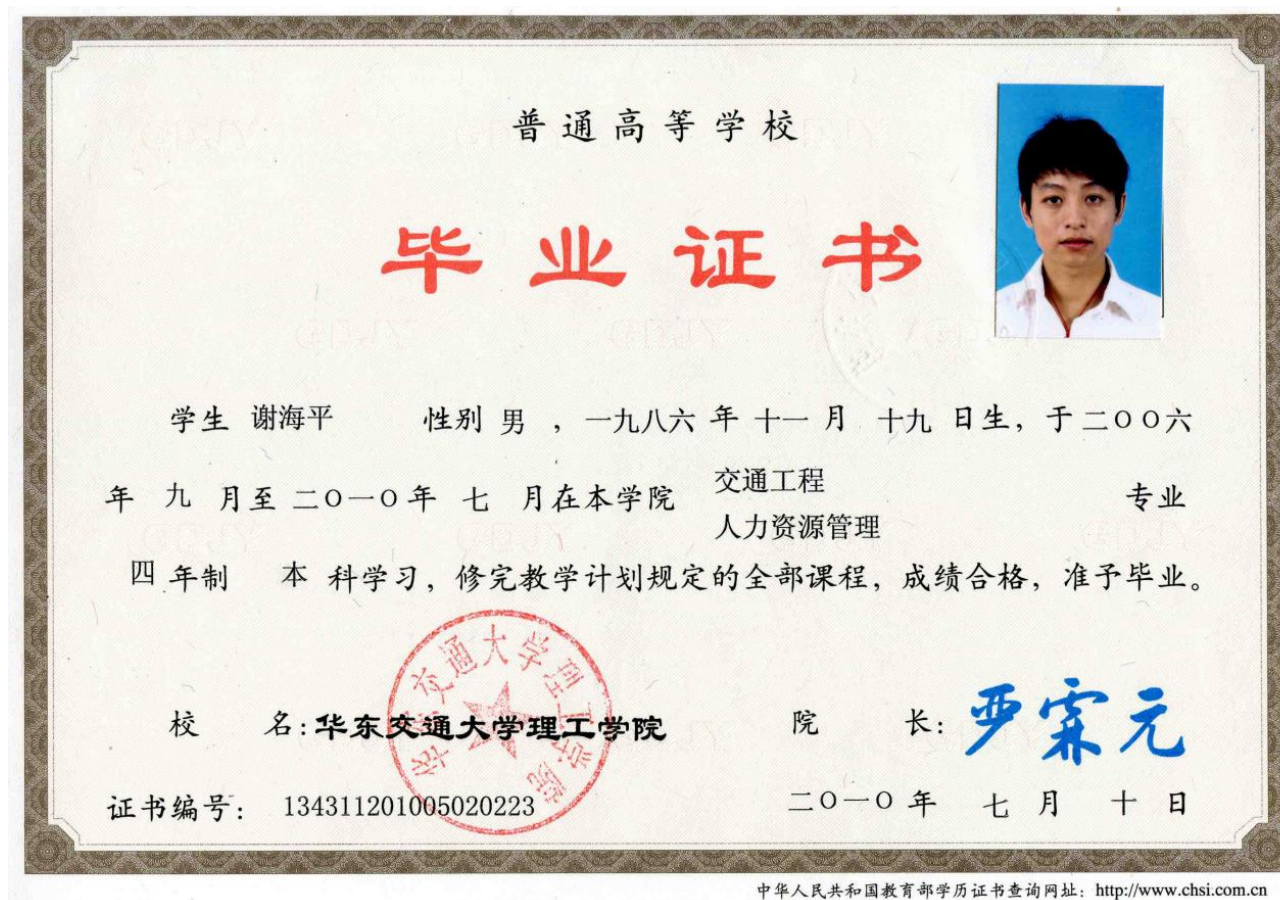 普通高等学校
毕业证书
学生 谢海平 性别 男 ，一九八六 年 十一 月 十九 日生，于 二〇〇六
年 九 月至 二〇一〇 年 七 月在本学院 交通工程 人力资源管理 专业
四 年制 本 科学习，修完教学计划规定的全部课程，成绩合格，准予毕业。
华东交通大学理工学院
校 名：华东交通大学理工学院 院 长：严霖元
证书编号： 134311201005020223 二〇一〇 年 七 月 十 日
中华人民共和国教育部学历证书查询网址：http://www.chsi.com.cn